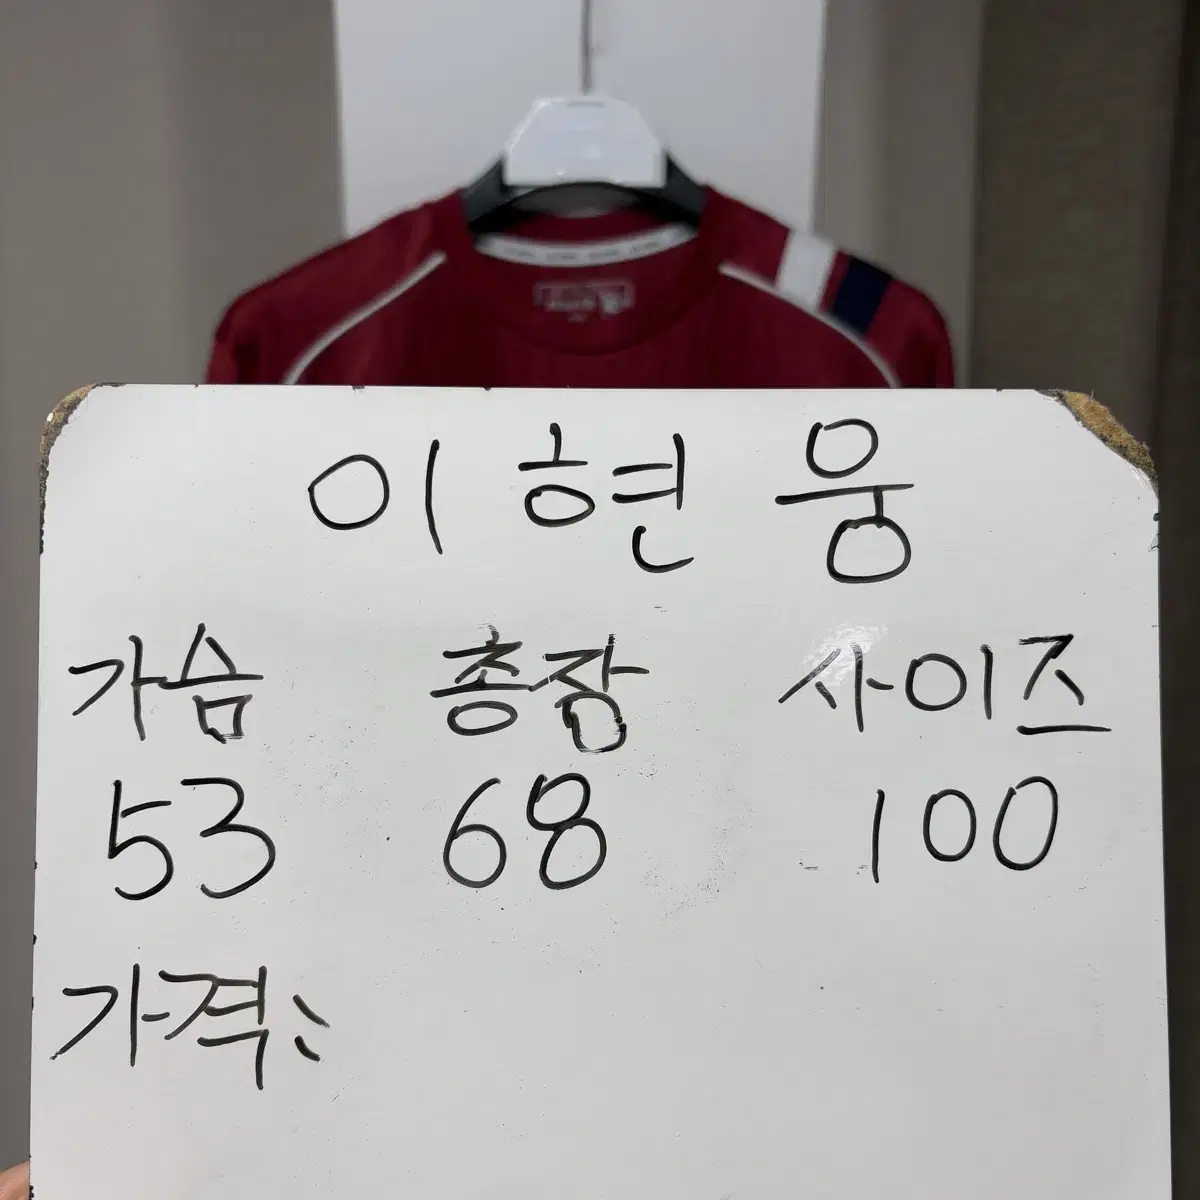 이현웅
가슴 총장 사이즈
53 68 100
가격: